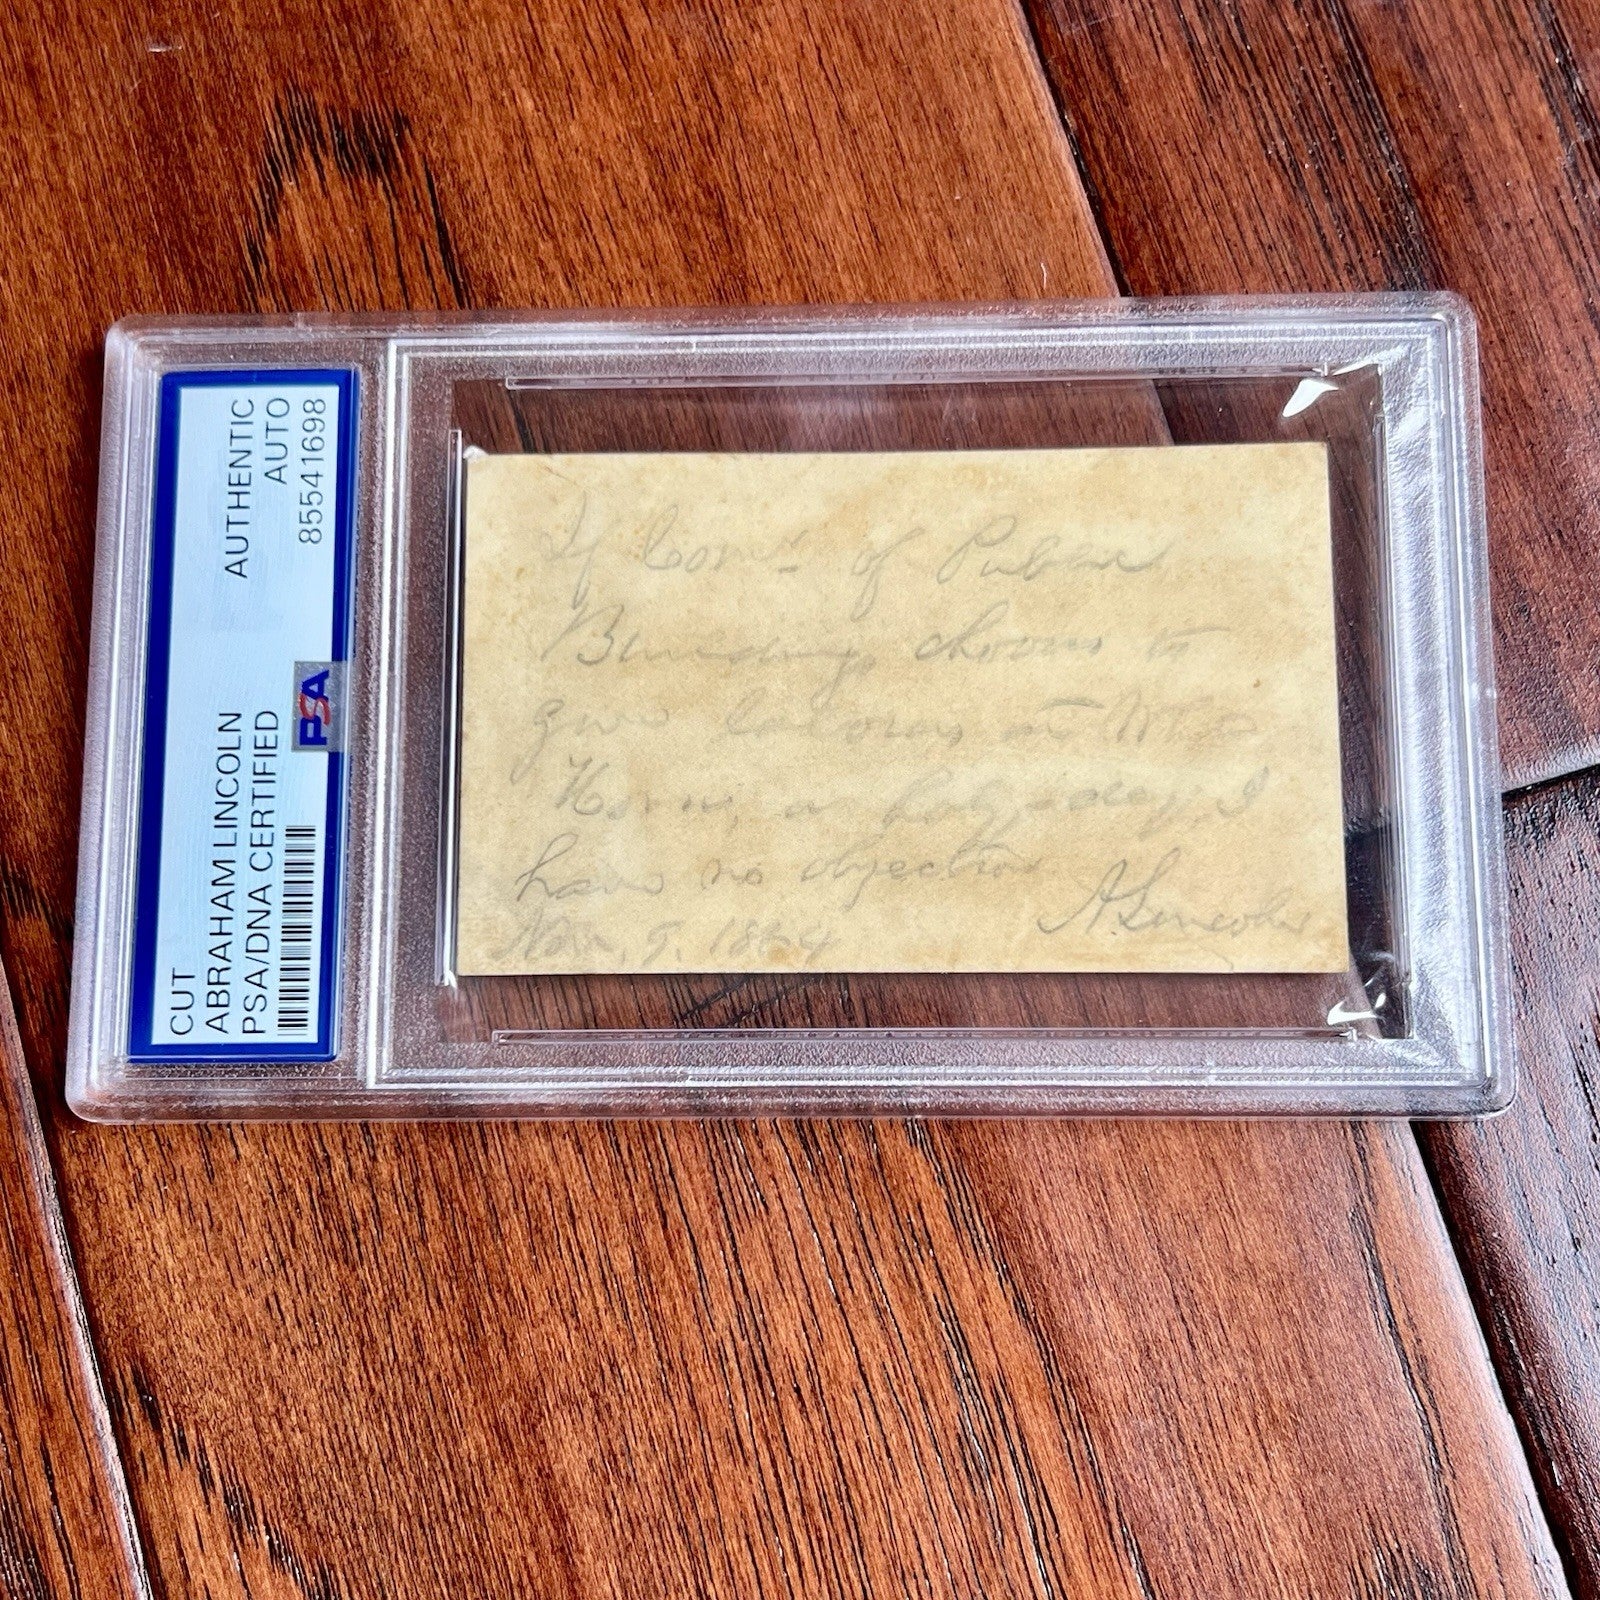 CUT
ABRAHAM LINCOLN
PSA/DNA CERTIFIED
AUTHENTIC
AUTO
85541698
PSA
If Com.r of Public
Buildings chooses to
give laborers at White
House, a holy-day, I
have no objection
A. Lincoln
Nov. 9. 1864